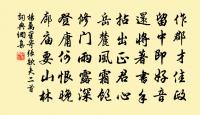 作郡才佳政
留中即好音
還將著書手
拈出正君心
岳麓風煙隔
修門雨露深
登庸何恨晚
廊廟要山林
楊萬里寄張欽夫二首
詞典網集